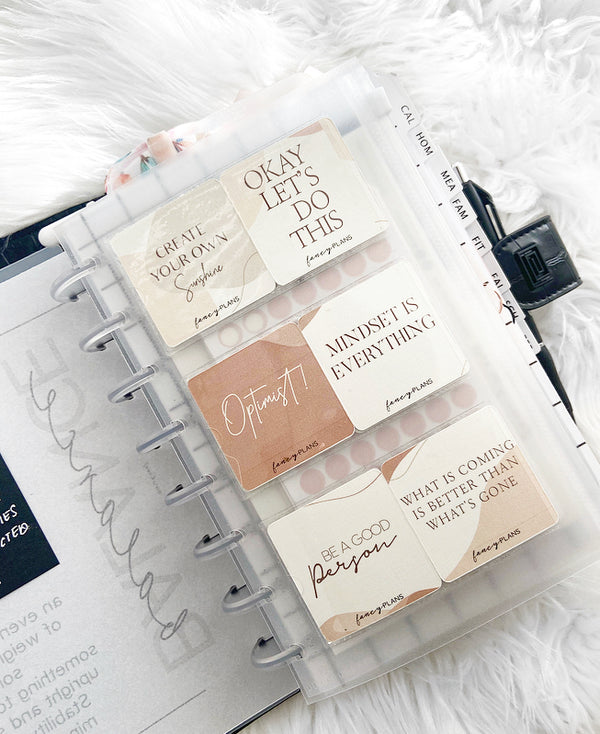 CREATE
YOUR OWN
Sunshine
fancyPLANS
OKAY
LET'S
DO
THIS
fancyPLANS
Optimist!
fancyPLANS
MINDSET IS
EVERYTHING
fancyPLANS
BE A GOOD
person
fancyPLANS
WHAT IS COMING
IS BETTER THAN
WHAT'S GONE
fancyPLANS
CAL
HOM
MEA
FAM
FIT
an even
of weig
something to
upright and s
Stabilit